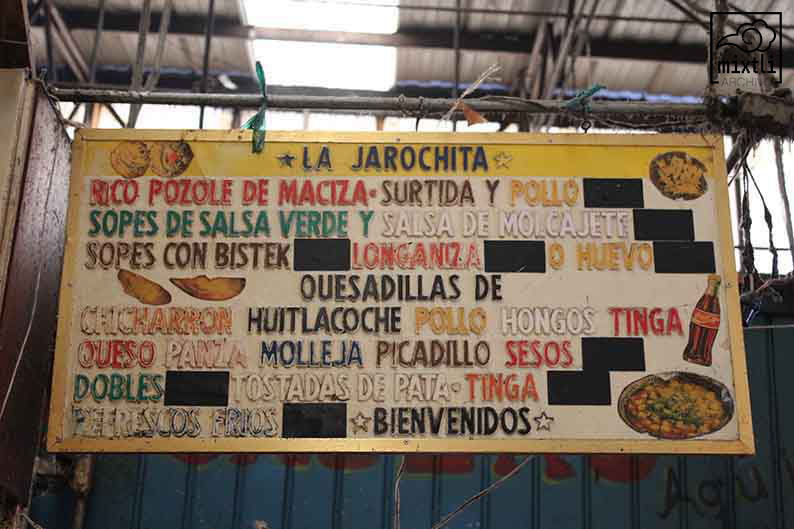 mixtli
ARCHIVO
★ LA JAROCHITA ★
RICO POZOLE DE MACIZA· SURTIDA Y POLLO
SOPES DE SALSA VERDE Y SALSA DE MOLCAJETE
SOPES CON BISTEK LONGANIZA O HUEVO
QUESADILLAS DE
CHICHARRON HUITLACOCHE POLLO HONGOS TINGA
QUESO PANZA MOLLEJA PICADILLO SESOS
DOBLES TOSTADAS DE PATA· TINGA
REFRESCOS FRIOS ★BIENVENIDOS★
Coca-Cola